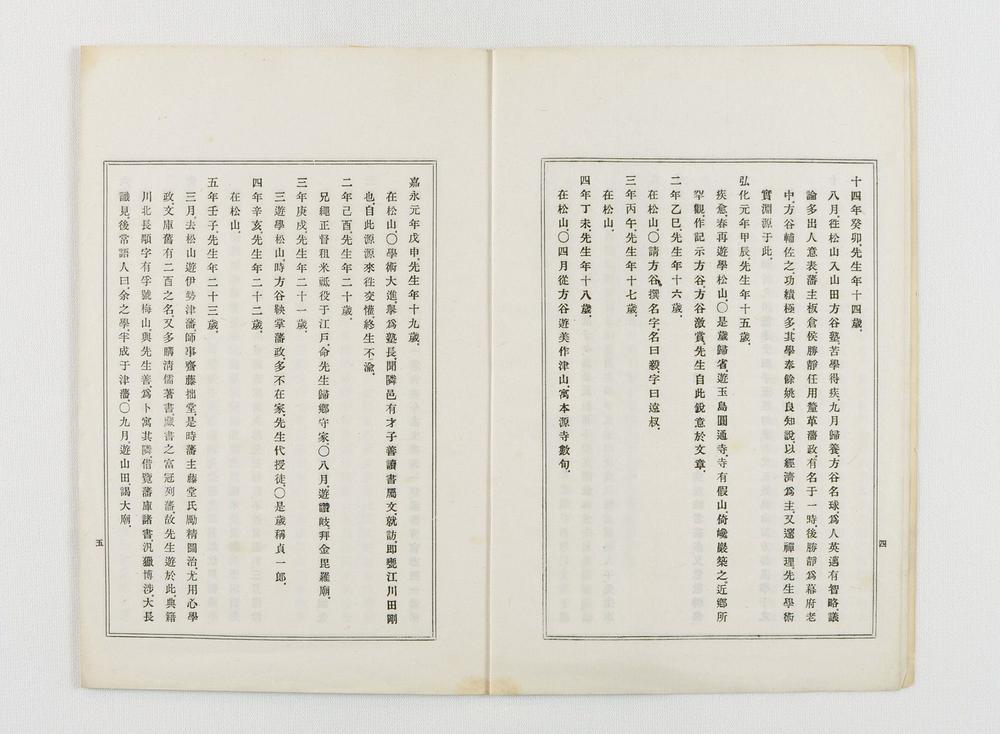 十四年癸卯、先生年十四歲、
八月徃松山入山田方谷塾、苦學得疾、九月歸養、方谷名球、爲人英邁有智略、議
論多出人意表、藩主板倉侯勝靜任用釐革藩政、有名于一時、後勝靜爲幕府老
中、方谷輔佐之、功績極多、其學奉餘姚良知說、以經濟爲主、又邃禪理、先生學術
實淵源于此、
弘化元年甲辰、先生年十五歲、
疾愈、春再遊學松山、〇是歲歸省、遊玉島圓通寺、寺有假山、倚巉巖築之、近鄕所
罕觀、作記示方谷、方谷激賞、先生自此銳意於文章、
二年乙巳、先生年十六歲、
在松山、〇請方谷撰名字、名曰毅、字曰遠叔、
三年丙午、先生年十七歲、
在松山、
四年丁未、先生年十八歲、
在松山、〇四月從方谷遊美作津山、寓本源寺數旬、
四
嘉永元年戊申、先生年十九歲、
在松山、〇學術大進、擧爲塾長、聞隣邑有才子善讀書屬文、就訪、卽甕江川田剛
也、自此源源來往、交懽終生不渝、
二年己酉、先生年二十歲、
兄繩正督租米祗役于江戶、命先生歸鄕守家、〇八月、遊讚岐、拜金毘羅廟、
三年庚戌、先生年二十一歲、
三遊學松山、時方谷鞅掌藩政、多不在家、先生代授徒、〇是歲稱貞一郞、
四年辛亥、先生年二十二歲、
在松山、
五年壬子、先生年二十三歲、
三月、去松山遊伊勢津藩、師事齋藤拙堂、是時藩主藤堂氏勵精圖治、尤用心學
政、文庫舊有二百之名、又多購淸儒著書、藏書之富冠列藩、故先生遊於此、典籍
川北長顒字有孚號梅山、與先生善、爲卜寓其隣、借覽藩庫諸書、汎獵博涉、大長
識見、後常語人曰、余之學、半成于津藩、〇九月、遊山田、謁大廟、
五